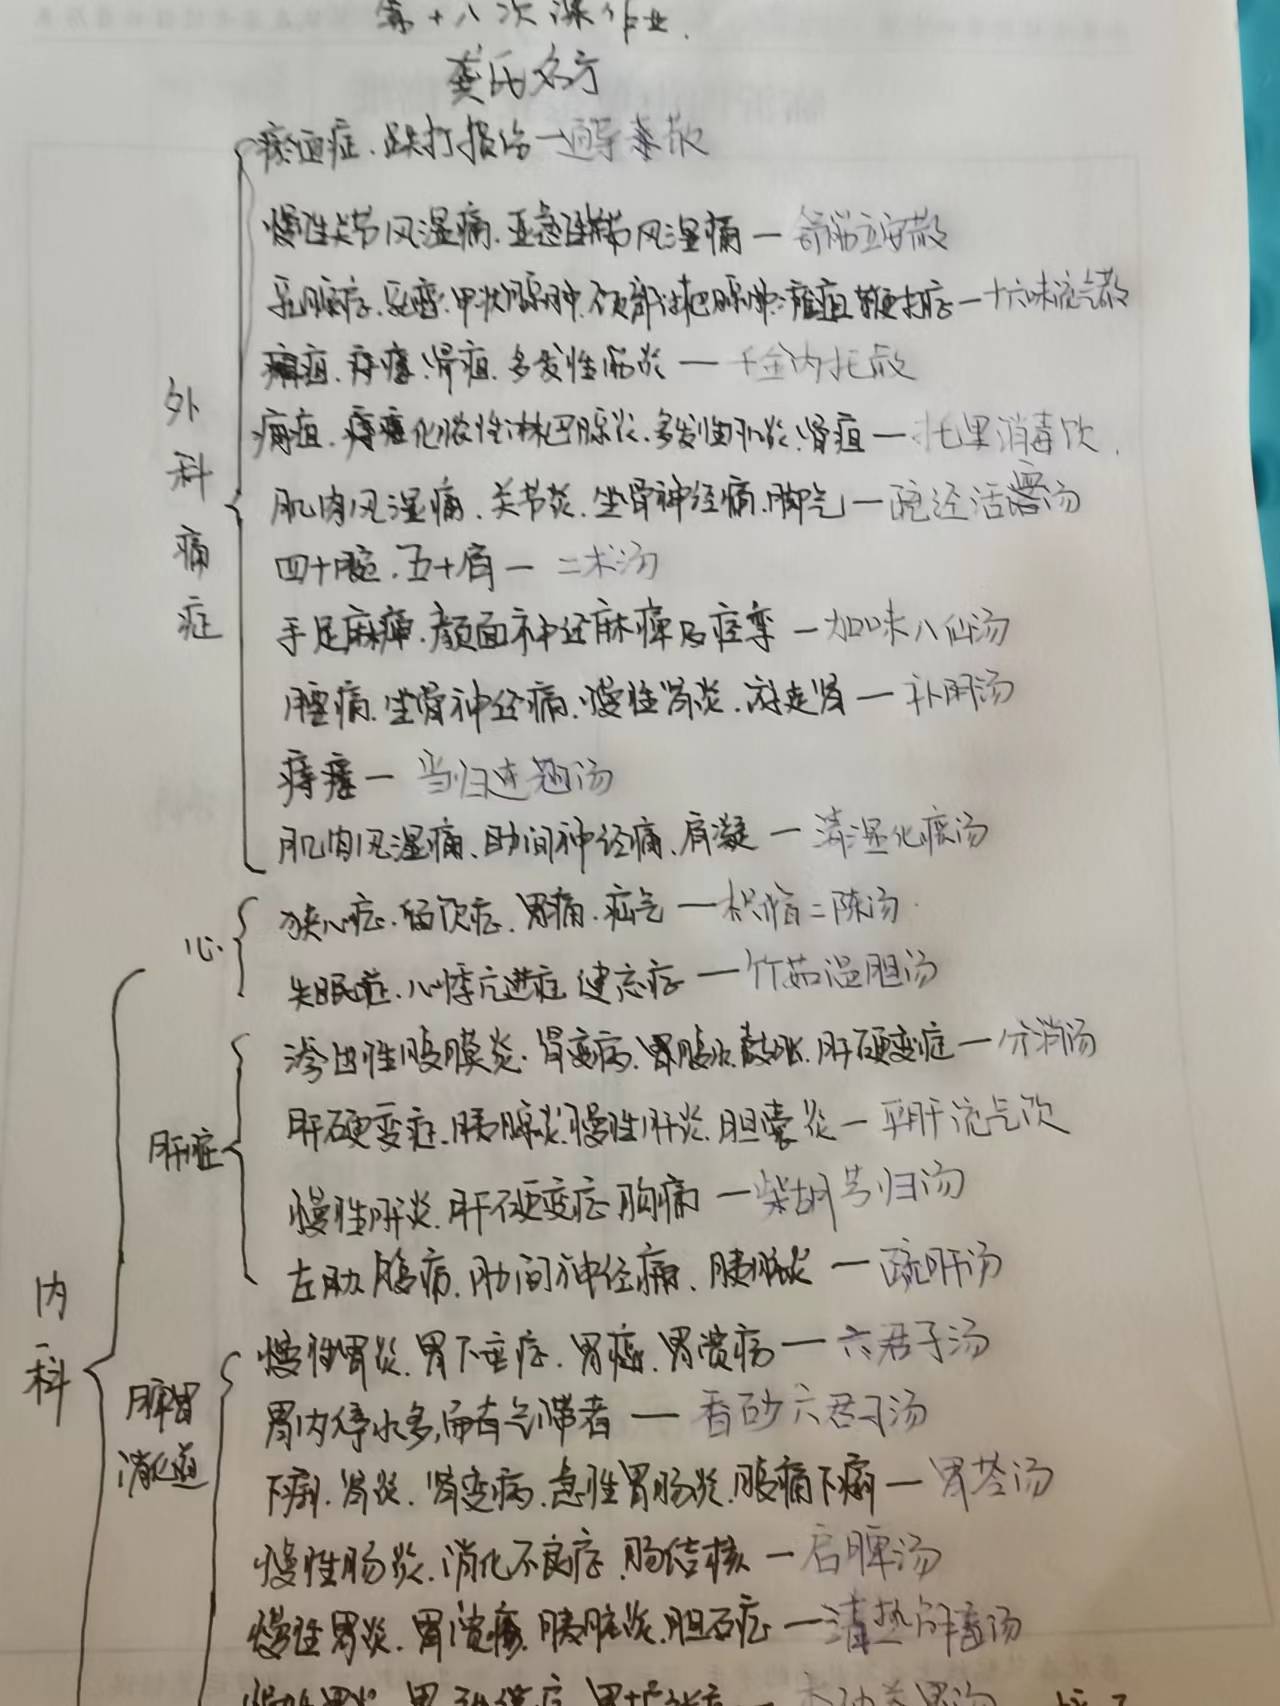 第十八次课作业.
龚氏名方
外科痛症
瘀血症.跌打损伤一通导散
慢性关节风湿痛.亚急性关节风湿痛一舒筋立安散
乳腺症.乳癌.甲状腺肿.颈部淋巴腺肿.瘫疽鞭打症一十六味流气散
痈疽.痔瘘.肾疽.多发性筋炎一千金内托散
痈疽.痔瘘化脓性淋巴腺炎.多发性肌炎.肾疽一托里消毒饮.
肌肉风湿痛.关节炎.坐骨神经痛.脚气一疏经活血汤
四十腕.五十肩一二术汤
手足麻痹.颜面神经麻痹及痉挛一加味八仙汤
腰痛.坐骨神经痛.慢性肾炎.游走肾一补阴汤
痔瘘一当归连翘汤
肌肉风湿痛.肋间神经痛.肩凝一清湿化痰汤
内科
心
狭心症.留饮症.胃痛.疝气一枳缩二陈汤.
失眠症.心悸亢进症.健忘症一竹茹温胆汤
肝症
渗出性腹膜炎.肾变病.胃腹水.鼓胀.肝硬变症一分消汤
肝硬变症.胰腺炎.慢性肝炎.胆囊炎一平肝流气饮
慢性肝炎.肝硬变症.胸痛一柴胡芎归汤
左肋腹痛.肋间神经痛.胰脏炎一疏肝汤
脾胃消化道
慢性胃炎.胃下垂症.胃癌.胃溃疡一六君子汤
胃内停水多,而有气滞者一香砂六君子汤
下痢.肾炎.肾变病.急性胃肠炎.腹痛下痢一胃苓汤
慢性肠炎.消化不良症.肠结核一启脾汤
慢性胃炎.胃溃疡.胰脏炎.胆石症一清热解郁汤